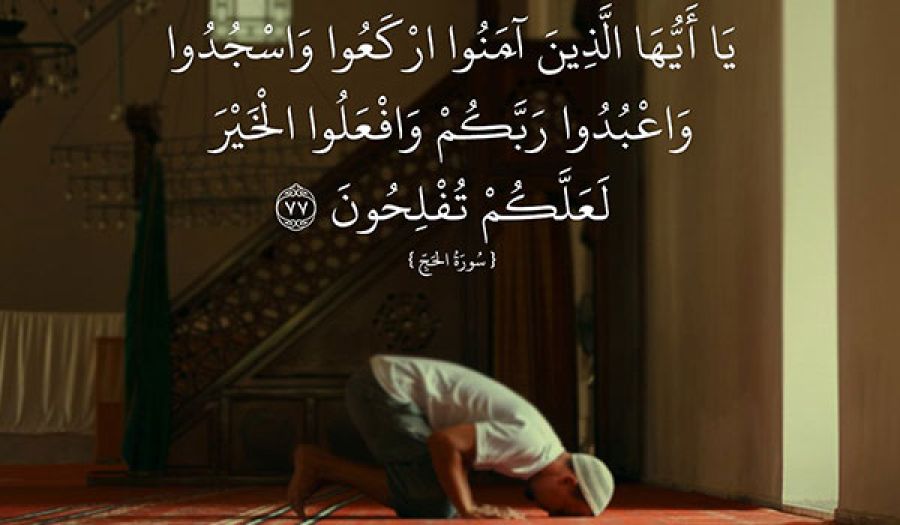 يَا أَيُّهَا الَّذِينَ آمَنُوا ارْكَعُوا وَاسْجُدُوا
وَاعْبُدُوا رَبَّكُمْ وَافْعَلُوا الْخَيْرَ
لَعَلَّكُمْ تُفْلِحُونَ ٧٧
{ سُورَةُ الحَجِّ }